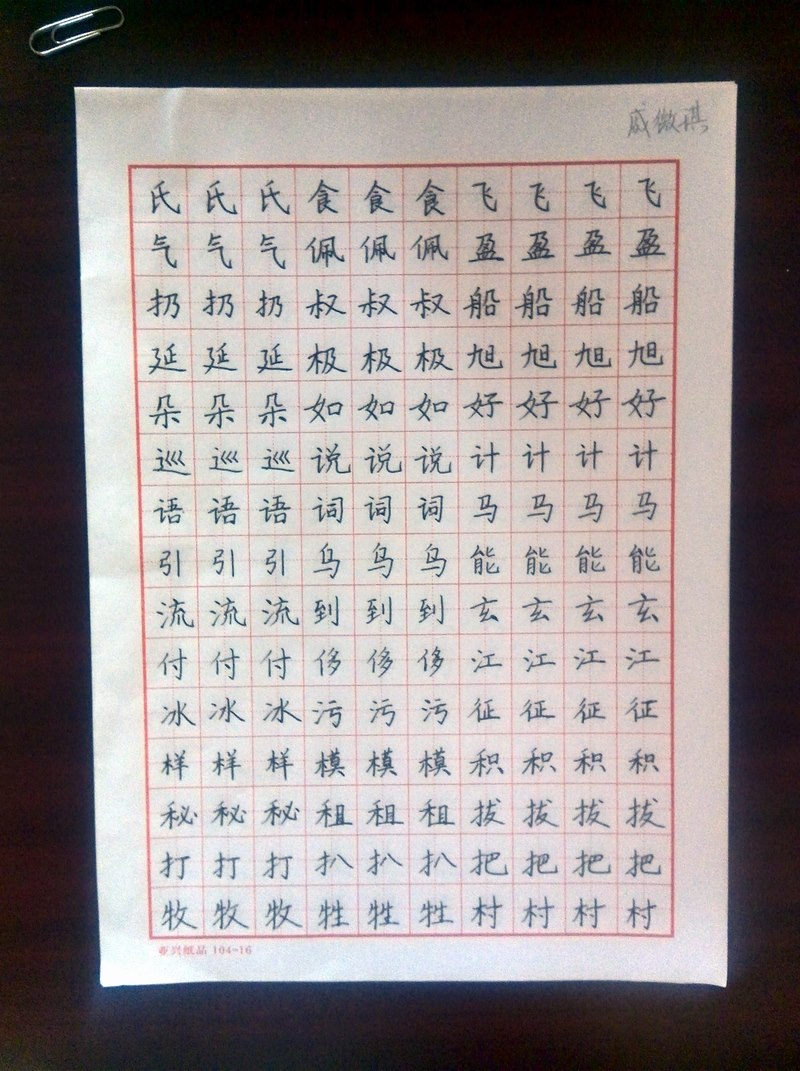 戚微祺
氏氏氏食食食飞飞飞飞
气气气佩佩佩盈盈盈盈
扔扔扔叔叔叔船船船船
延延延极极极旭旭旭旭
朵朵朵如如如好好好好
巡巡巡说说说计计计计
语语语词词词马马马马
引引引鸟鸟鸟能能能能
流流流到到到玄玄玄玄
付付付侈侈侈江江江江
冰冰冰污污污征征征征
样样样模模模积积积积
秘秘秘租租租拔拔拔拔
打打打扒扒扒把把把把
牧牧牧牲牲牲村村村村
亚兴纸品 104-16